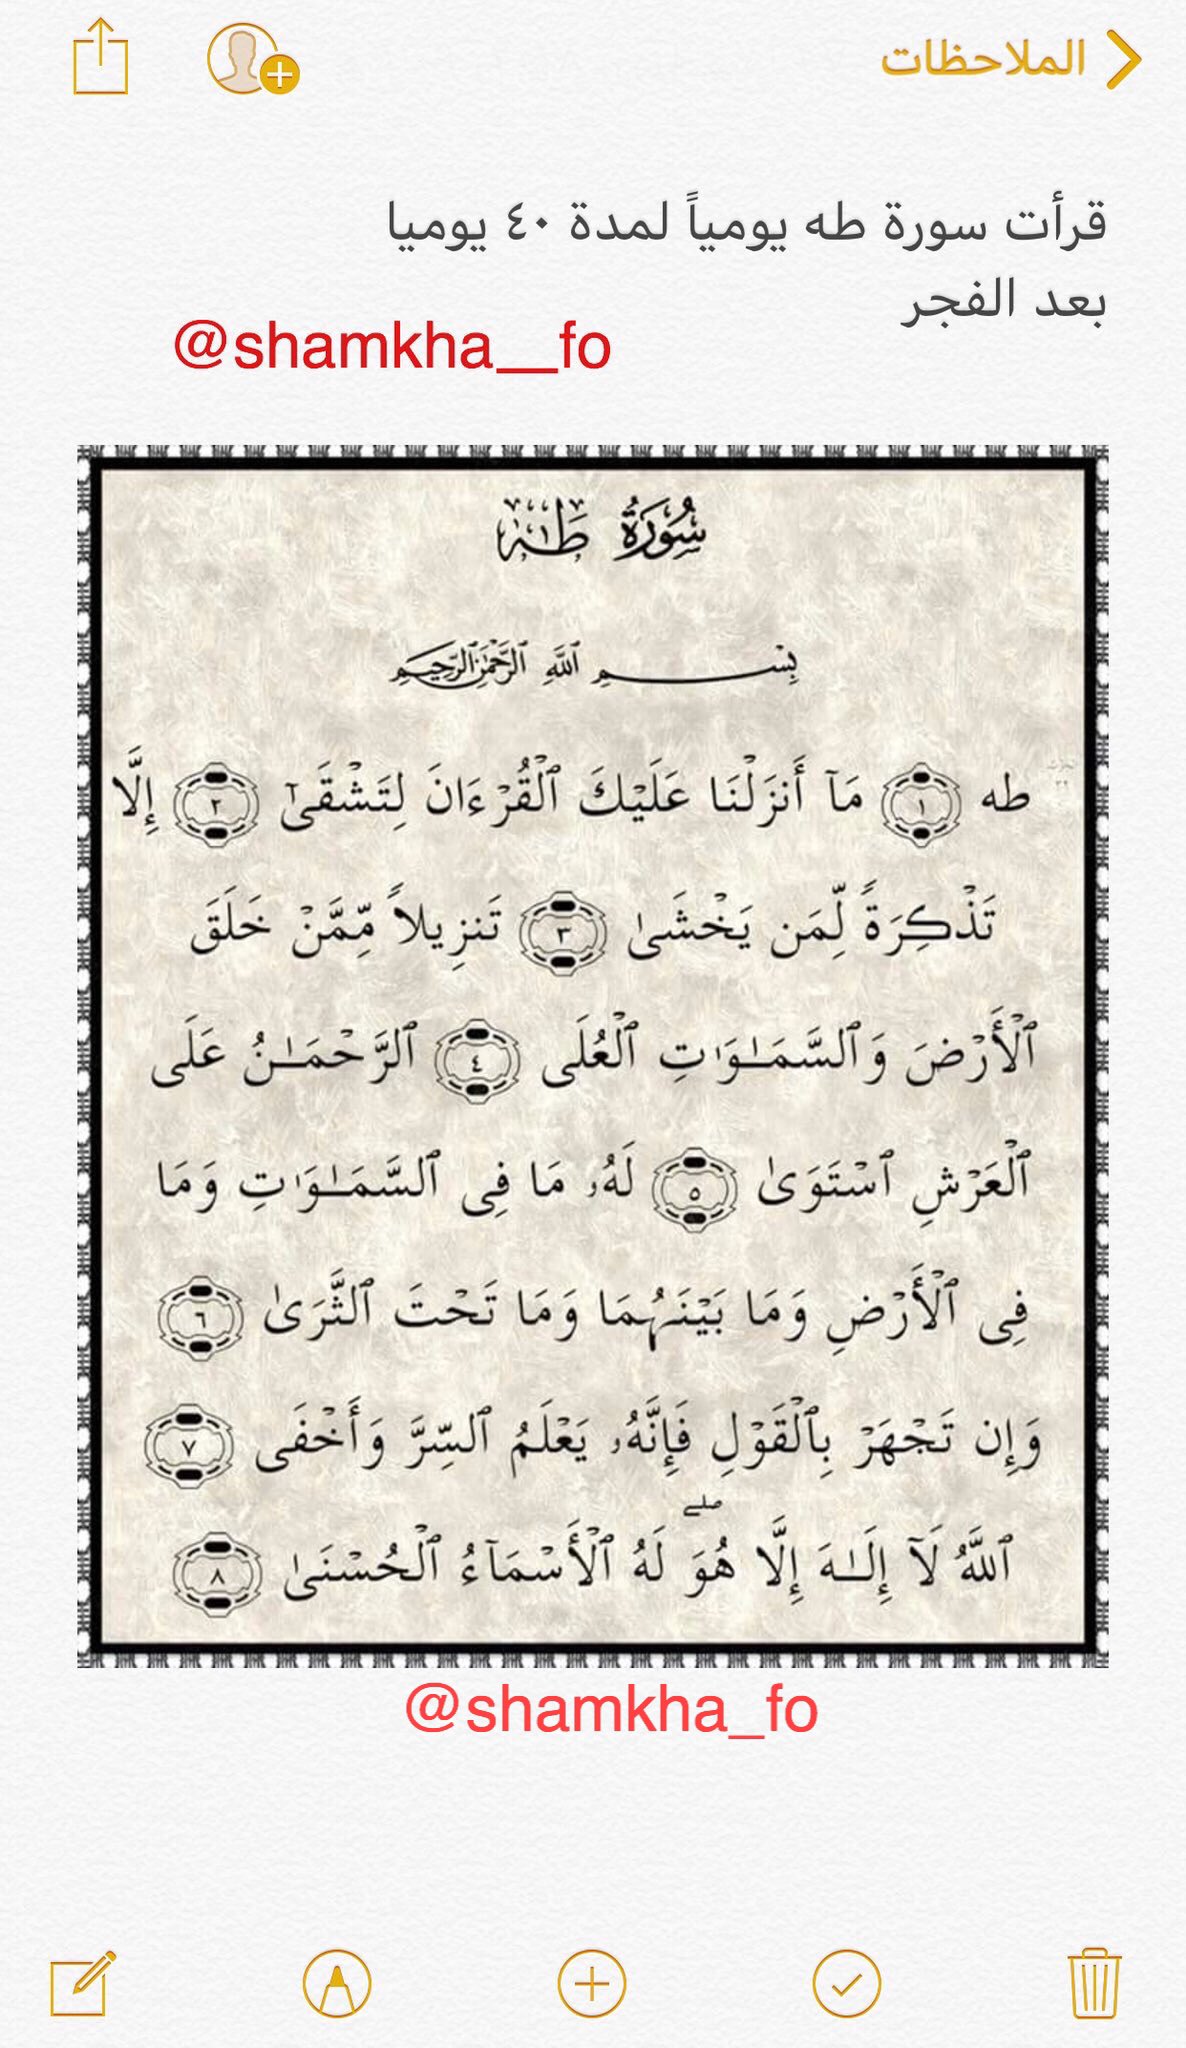 الملاحظات
قرأت سورة طه يومياً لمدة ٤٠ يوميا
بعد الفجر
@shamkha__fo
سُورَةُ طٰهٰ
بِسْمِ ٱللَّهِ ٱلرَّحْمَٰنِ ٱلرَّحِيمِ
طه ١ مَآ أَنزَلْنَا عَلَيْكَ ٱلْقُرْءَانَ لِتَشْقَىٰٓ ٢ إِلَّا
تَذْكِرَةً لِّمَن يَخْشَىٰ ٣ تَنزِيلاً مِّمَّنْ خَلَقَ
ٱلْأَرْضَ وَٱلسَّمَـٰوَٰتِ ٱلْعُلَى ٤ ٱلرَّحْمَـٰنُ عَلَى
ٱلْعَرْشِ ٱسْتَوَىٰ ٥ لَهُۥ مَا فِى ٱلسَّمَـٰوَٰتِ وَمَا
فِى ٱلْأَرْضِ وَمَا بَيْنَهُمَا وَمَا تَحْتَ ٱلثَّرَىٰ ٦
وَإِن تَجْهَرْ بِٱلْقَوْلِ فَإِنَّهُۥ يَعْلَمُ ٱلسِّرَّ وَأَخْفَى ٧
ٱللَّهُ لَآ إِلَـٰهَ إِلَّا هُوَ ۖ لَهُ ٱلْأَسْمَآءُ ٱلْحُسْنَىٰ ٨
@shamkha_fo